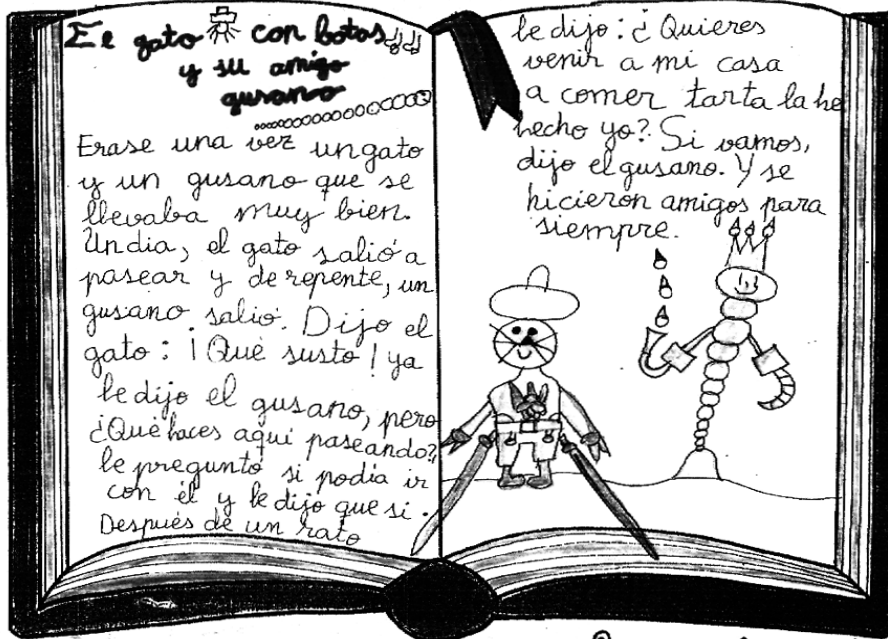 El gato con botas
y su amigo
gusano
Erase una vez un gato
y un gusano que se
llevaba muy bien.
Un dia, el gato salió a
pasear y de repente, un
gusano salió. Dijo el
gato: ¡Qué susto! ya
le dijo el gusano, pero
¿Qué haces aquí paseando?,
le preguntó si podía ir
con él y le dijo que si.
Después de un rato
le dijo: ¿Quieres
venir a mi casa
a comer tarta la he
hecho yo? Si vamos,
dijo el gusano. Y se
hicierón amigos para
siempre.